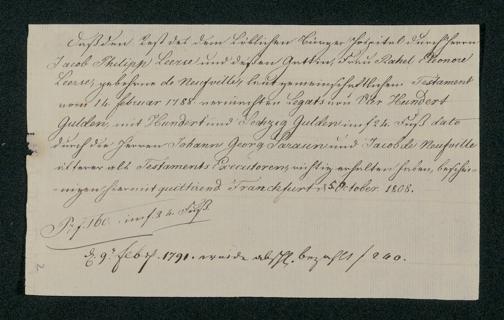 Daß den Rest des dem Löblichen Bürger Hospital durch Herrn
Jacob Philipp Leerse und deßen Gattin, Frau Rahel Eleonore
Leerse, gebohrne de Neufville, laut gemeinschaftlichen Testament
vom 14. Februar 1788 vermachten Legats von Vier Hundert
Gulden, mit Hundert und Sechzig Gulden im f 24 Fuß dato
durch die Herren Johann Georg Sarasin und Jacob de Neufville
älterer als Testaments Executoren, richtig erhalten haben, beschei-
nigen hiermit quittirend Franckfurt 5 October 1808.
Pr. f. 160. im f 24 Fuß
d. 9. Feb. 1791. wurde abschl. bezahlt f 240.